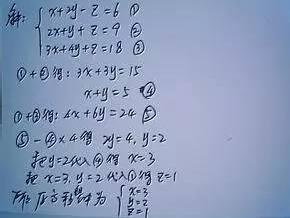 解: { x+2y-z=6 ①
2x+y+z=9 ②
3x+4y+z=18 ③
①+②得: 3x+3y=15
x+y=5 ④
①+③得: 4x+6y=24 ⑤
⑤-④×4得 2y=4, y=2
把y=2代入④得 x=3
把 x=3, y=2代入①得z=1
所以原方程解为 { x=3
y=2
z=1